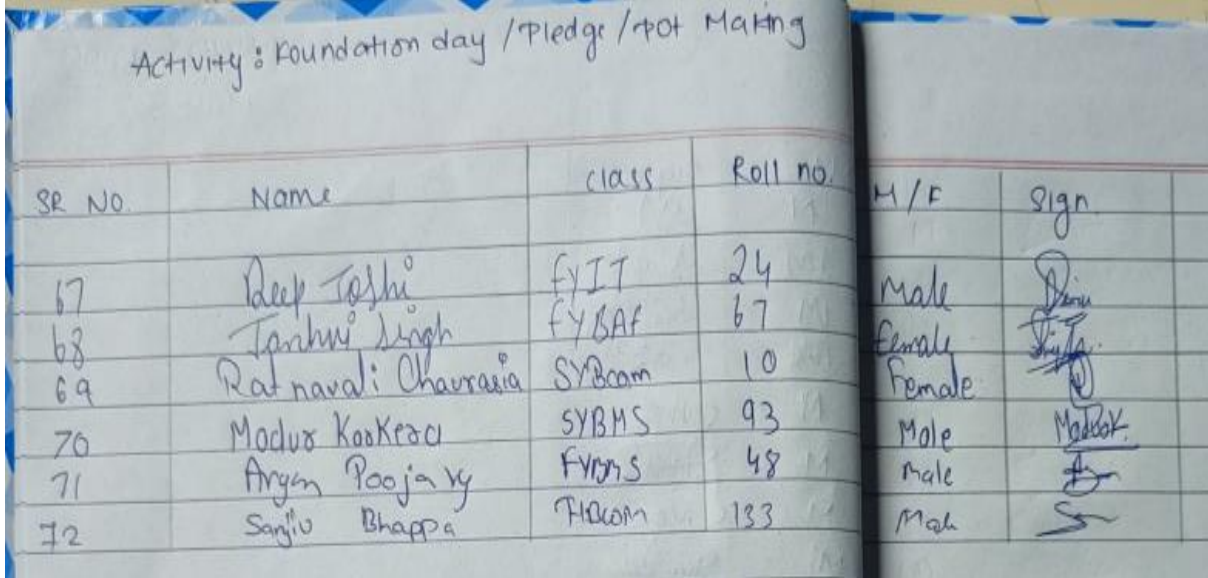 Activity : Foundation day / Pledge / Pot Making
SR NO. Name class Roll no. M/F Sign.
67 Deep Joshi FYIT 24 Male
68 Tanhvi Singh FYBAF 67 Female
69 Ratnavali Chaurasia SYBcom 10 Female
70 Madur Karkera SYBMS 93 Male
71 Aryan Poojary FYBMS 48 Male
72 Sanjiv Bhappa 133 Male